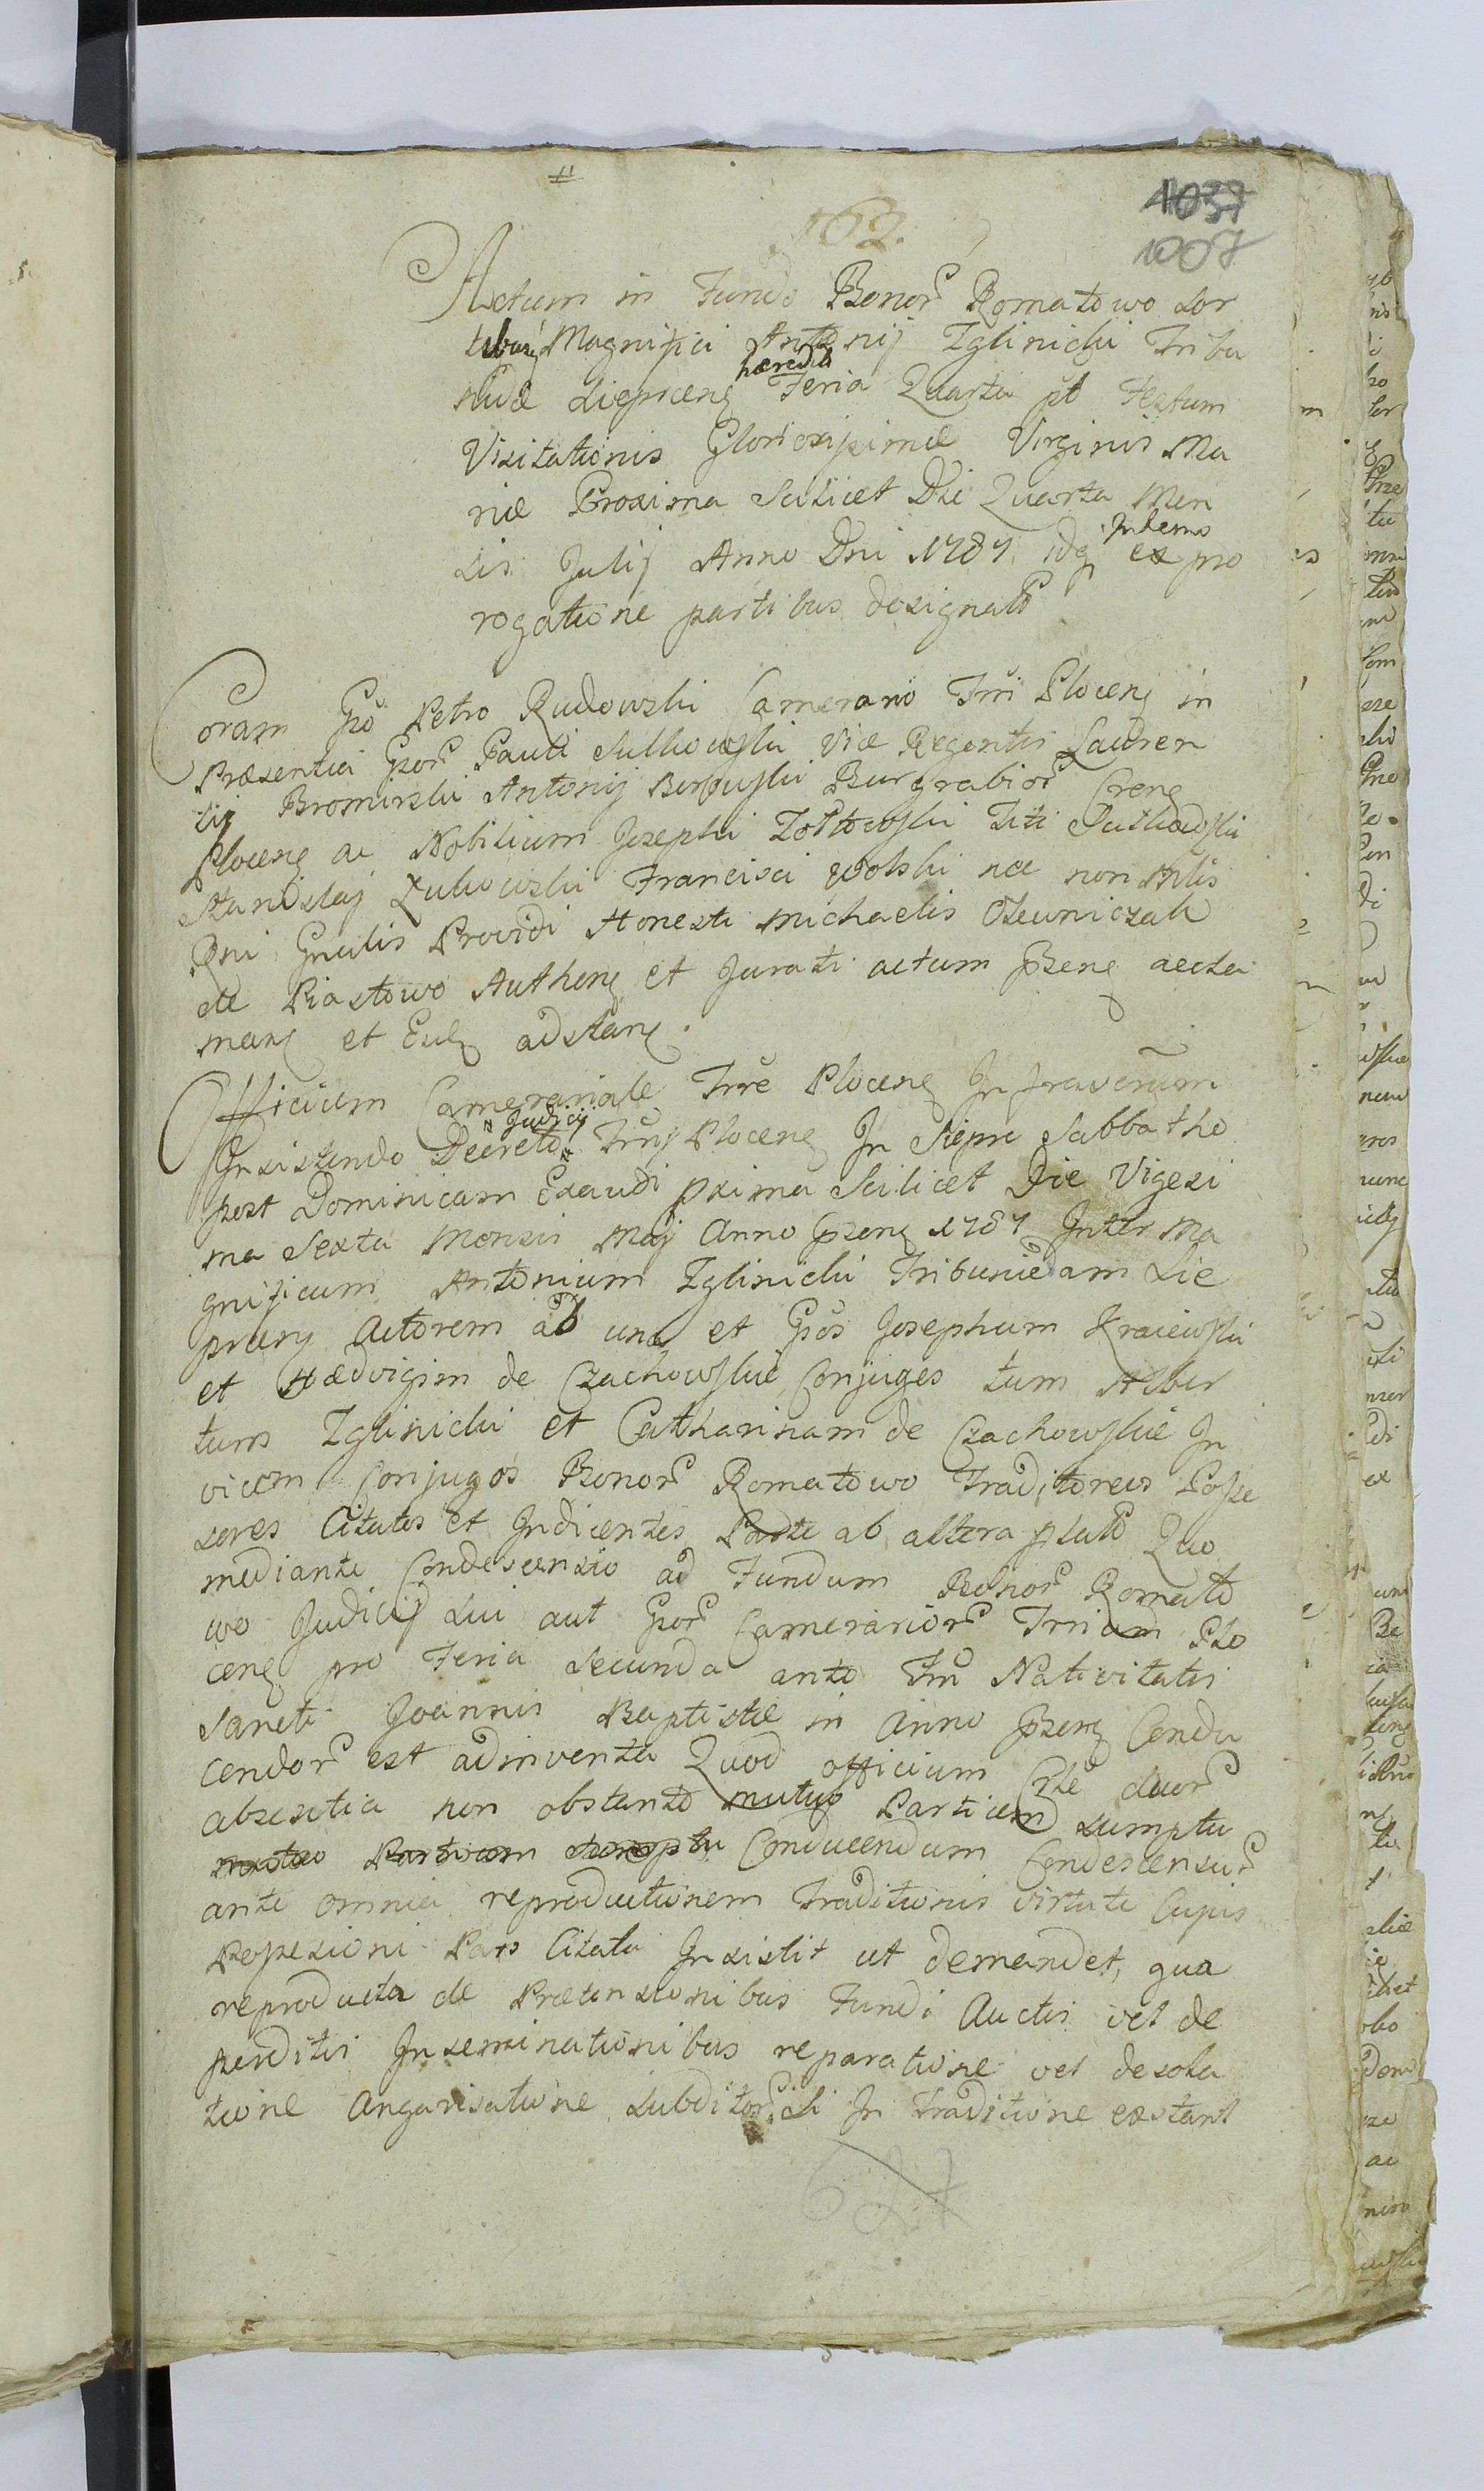 162.
1037
1007
Actum in Fundo Bonor Romatowo Sor
tibus Magnifici Antonij Zglinicki Tribu
nidæ Liepnens hæredis Feria Quarta pt Festum
Visitationis Gloriosissimæ Virginis Ma
riæ Proxima Scilicet Die Quarta Men
sis Julij Anno Dni 1781 idq Interno ex pro
rogatione partibus designato
Coram Gso Petro Rudowski Camerario Trri Plocens in
Præsentia Gsor Pauli Sulkowski Vice Regentis Lauren
tij Bromirski Antonij Borowski Burgrabior Crens
Plocens ac Nobilium Josephi Zoltowski Titi Sulkowski
Stanislaj Zukowski Francisci Wolski nec non Mlis
Rni Gnalis Providi Honesti Michaelis Olewniczak
de Piastowo Authens et Jurati actum Psens accla
mans et Euls adstans.
Officium Camerariale Trrē Plocens In
Insistendo Decreto Judicij Trrij Plocens In Siepre Sabbatho
post Dominicam Exaudi pxima Scilicet Die Vigesi
ma Sexta Mensis Maij Anno psens 1781 Inter Ma
gnificum Antonium Zglinicki Tribunidam Lie
pnens Actorem ab una et Gsos Josephum Kraiewski
et Hædvigim de Czachowskie Conjuges tum Alber
tum Zglinicki et Catharinam de Czachowskie In
vicem Conjuges Bonor Romatowo Traditoreos Posse
sores Citatos et Indicentes Parte ab altera plato Quo
mediante Condescensio ad Fundum Bonor Romato
wo Judicij Sui aut Gsor Camerarior Trriam Plo
cens pro Feria Secunda ante Fm Nativitatis
Sancti Joannis Baptistæ in Anno psens Condu
cendor est adinventa Quod officium Crlē duor
absentia non obstante mutuo Partium Sumptu
mutuo Partium sumptu Conducendum Condescensur
ante omnia reproductionem Traditionis virtute Cujus
Possessioni Pars Citata Insistit ut demandet, qua
reproducta de Prætensionibus Fundi Auctis vel de
perditis Inseminationibus reparatione vel desola
tione Angarisatione Subditor Si In Traditione exstant